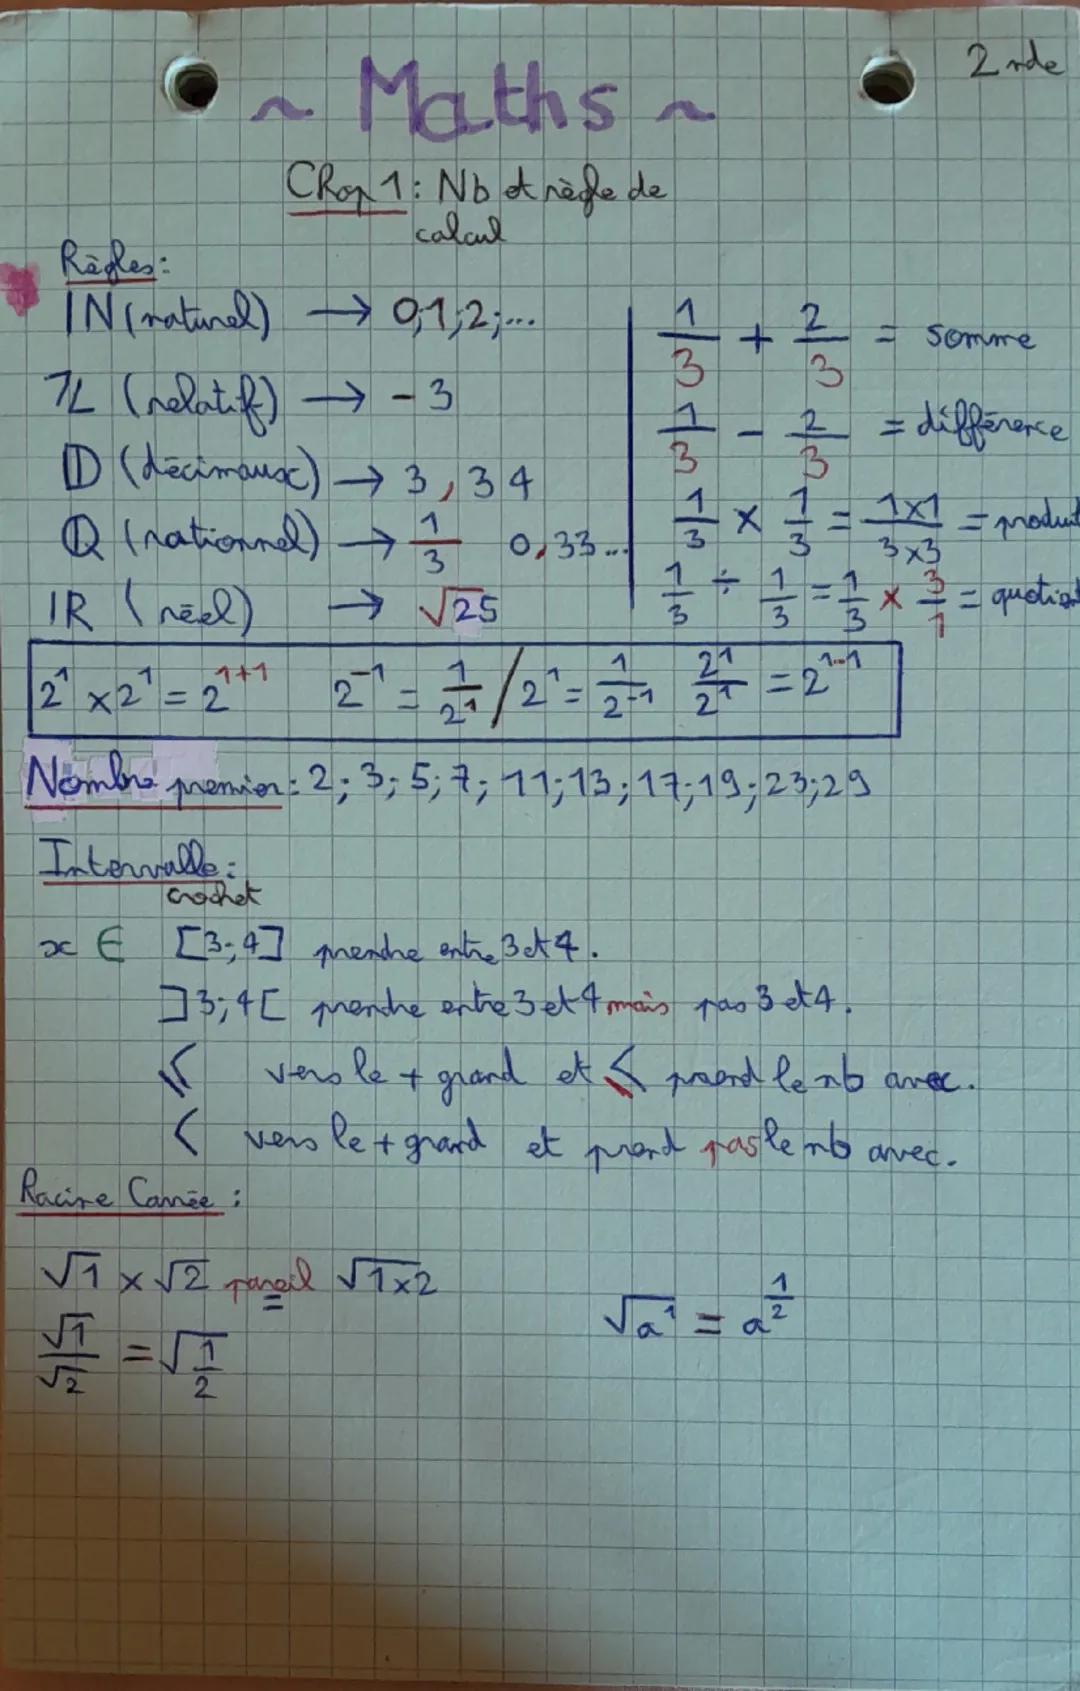 2nde
~ Maths ~
Chap 1 : Nb et règle de
calcul
Règles :
ℕ (naturel) → 0;1;2;...
ℤ (relatif) → -3
𝔻 (décimaux) → 3,34
ℚ (rationnel) → 1/3 0,33...
ℝ (réel) → √25
1/3 + 2/3 = somme
1/3 - 2/3 = différence
1/3 × 1/3 = 1×1/3×3 = produit
1/3 ÷ 1/3 = 1/3 × 3/1 = quotient
2¹ × 2¹ = 2¹⁺¹ 2⁻¹ = 1/2¹ / 2¹ = 1/2⁻¹ 2¹/2¹ = 2¹⁻¹
Nombre premier : 2; 3; 5; 7; 11; 13; 17; 19; 23; 29
Intervalle :
crochet
x ∈ [3;4] prendre entre 3 et 4.
]3;4[ prendre entre 3 et 4 mais pas 3 et 4.
⩽ vers le + grand et ⩽ prend le nb avec.
< vers le + grand et prend pas le nb avec.
Racine Carrée :
√1 × √2 pareil = √1×2
√1/√2 = √1/2
√a¹ = a^1/2